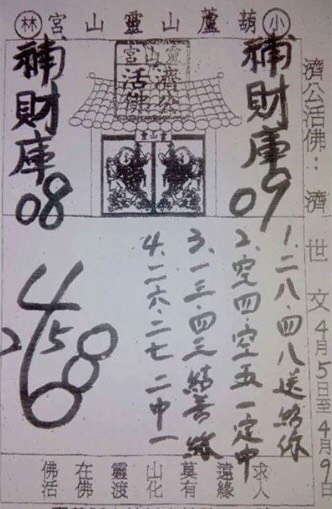 小葫蘆山靈山宮林
濟公活佛：濟世文4月5日至4月9日
靈山宮
濟公活佛
補財庫
09
補財庫
08
1、二八.四八送給你
2、空四.空五一定中
3、一三.四三結善緣
4、二六.二七二中一
佛在靈山莫遠求
活佛渡化有緣人